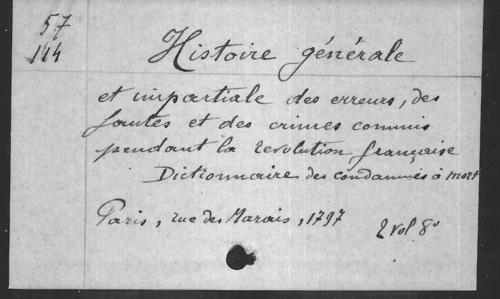 57
144
Histoire générale
et impartiale des erreurs, des
fautes et des crimes commis
pendant la revolution française
Dictionnaire des condamnés à mort
Paris, rue des Marais, 1797
2 vol 8°